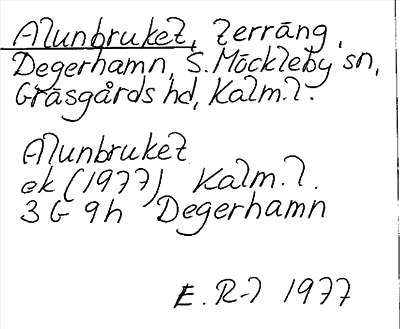 Alunbruket, terräng,
Degerhamn, S. Möckleby sn,
Gräsgårds hd, Kalm. l.
Alunbruket
ek (1977) Kalm. l.
3 G 9 h Degerhamn
E. R-l 1977